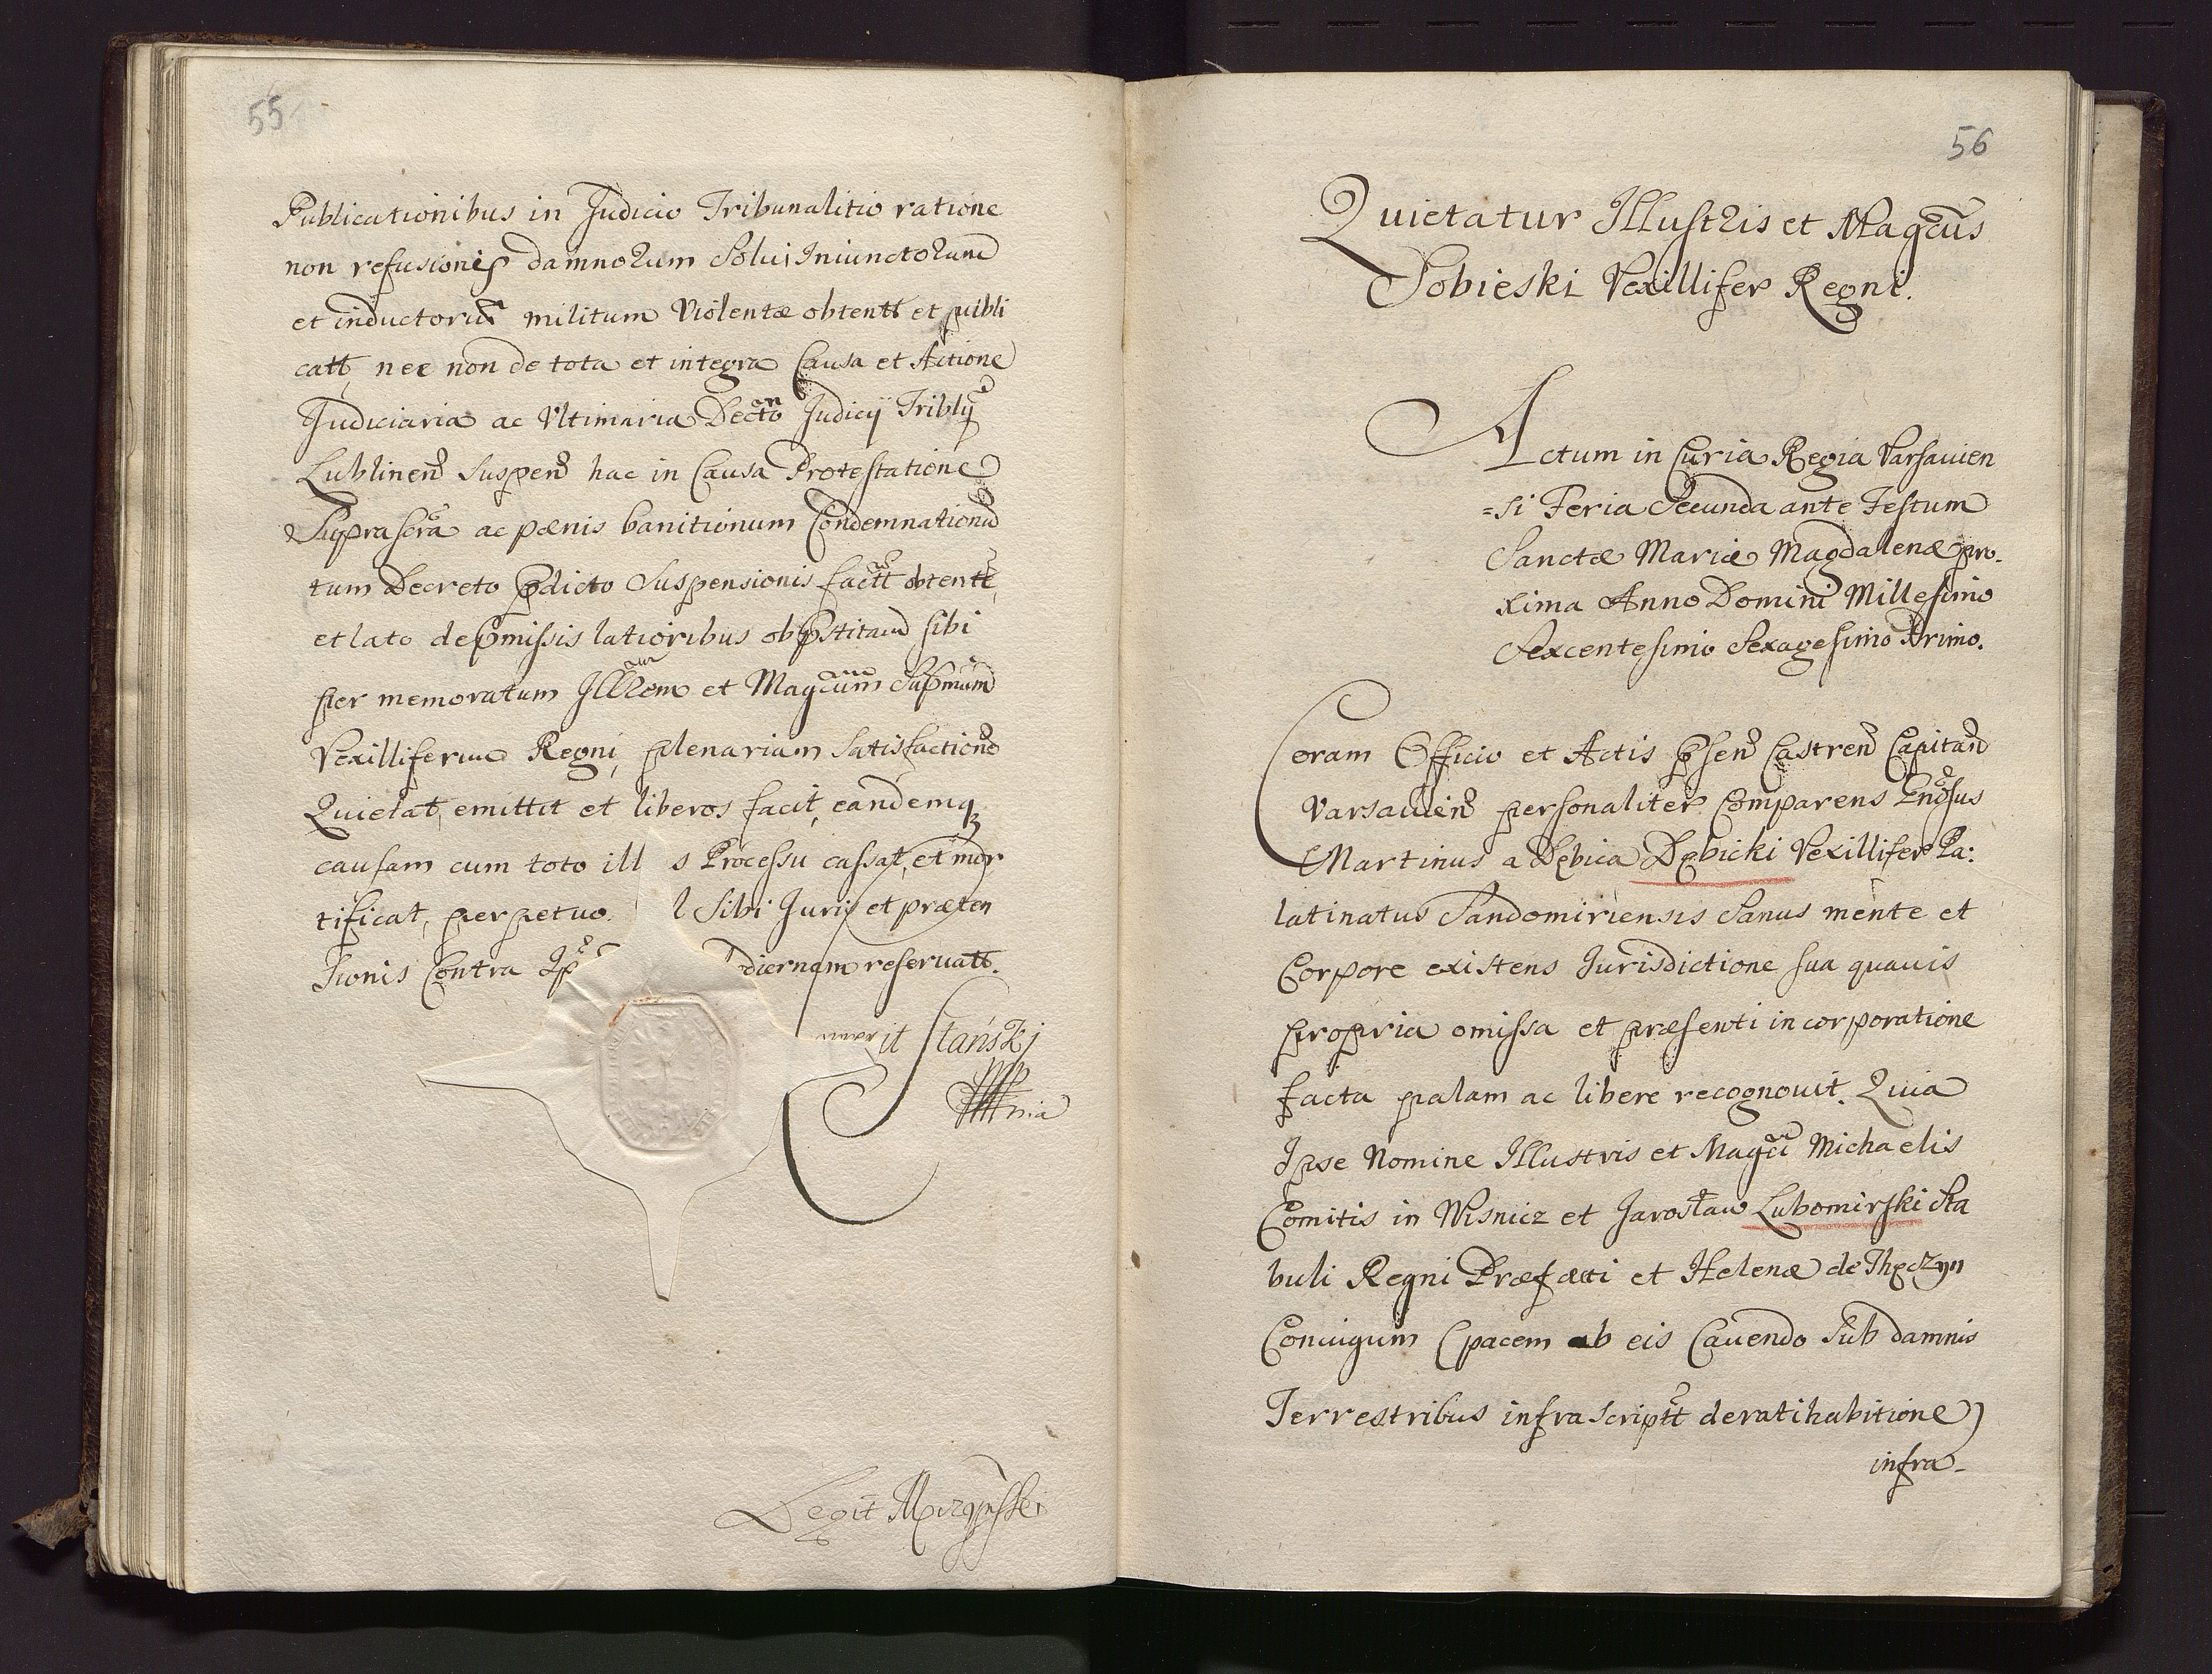 55
Publicationibus in Judicio Tribunalitio ratione
non refusionis damnorum Solui Iniunctorum
et inductorum militum Violentæ obtentt et publi
catt, nec non de tota et integra Causa et Actione
Judiciaria ac Vltimaria Decto Judicij Triblij
Lublinen Suspen hac in Causa Protestatione
Suprascra ac pœnis banitionum Condemnationu
tum Decreto pdicto Suspensionis factt obtentt,
et lato de pmissis latioribus obpstitam sibi
per memoratum Illrem et Magcum Supmum
Vexilliferum Regni, plenariam Satisfactione
Quietat, emittit et liberos facit, eandemq
causam cum toto ill s Processu cassat, et mor
tificat, perpetuo. l Sibi Juris et præten
sionis Contra Ip diernam reseruatt.
it Stański
mp
Legit
56
Quietatur Illustris et Magcus
Sobieski Vexillifer Regni.
Actum in Curia Regia Varsauien
=si Feria Secunda ante Festum
Sanctæ Mariæ Magdalenæ pro.
xima Anno Domini Millesimo
Sexcentesimo Sexagesimo Primo.
Coram Officio et Actis psen Castren Capitan
Varsauien personaliter Comparens Gnosus
Martinus a Dębica Dębicki Vexillifer Pa:
latinatus Sandomiriensis Sanus mente et
Corpore existens Jurisdictione sua quauis
propria omissa et præsenti incorporatione
facta palam ac libere recognouit. Quia
Ipse Nomine Illustris et Magci Michaelis
Comitis in Wisnicz et Jarosław Lubomirski Sta
buli Regni Præfecti et Helenæ de Thęczyn
Coniugum (pacem ab eis Cauendo Sub damnis
Terrestribus infrascriptt de ratihabitione)
infra-